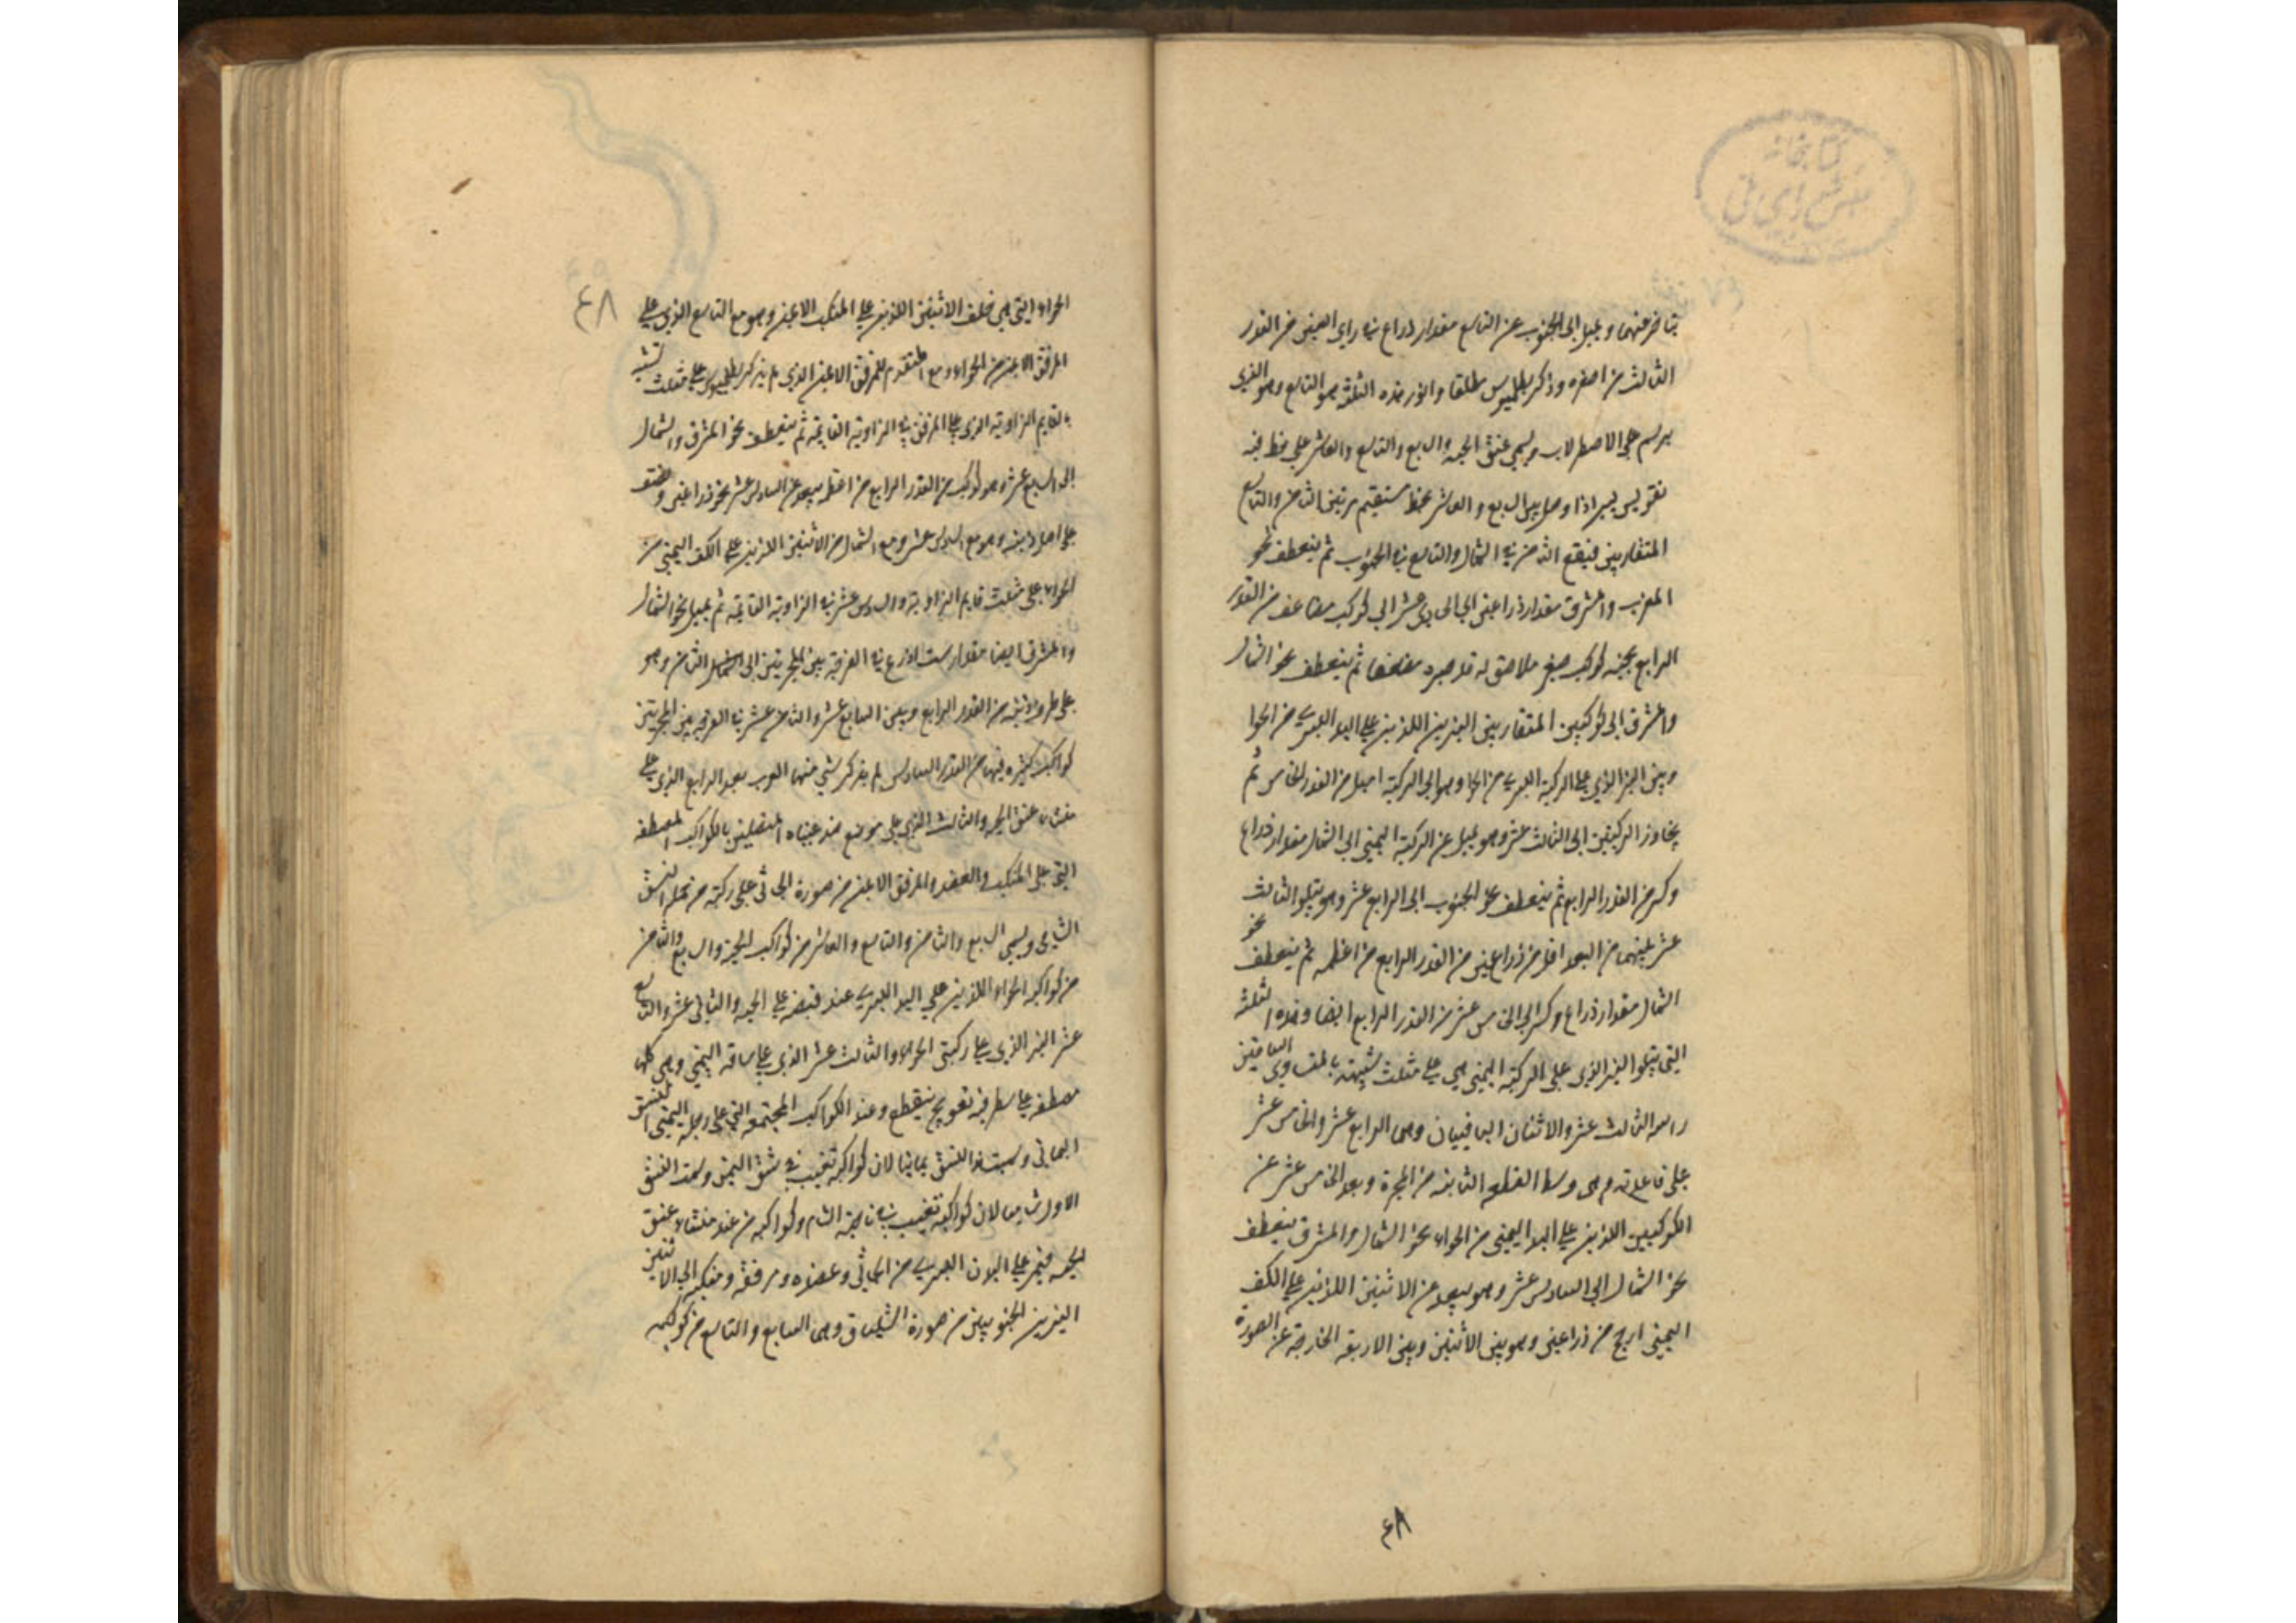 كتابخانه
مجلس شورای ملی
يتاخر عنهما ويميل الى الجنوب عن التاسع مقدار ذراع في راي العين من القدر
الثالث من اصغره وذكر بطلميوس مطلقا وانور هذه الثلثة هو التاسع وهو الذي
يرسم على الاصطرلاب ويسمى عنق الحية والسابع والتاسع والعاشر على خط فيه
تقويس يسير اذا وصل بين السابع والعاشر بخط مستقيم مر بين الثامن والتاسع
المتقاربين فيقع الثامن في الشمال والتاسع في الجنوب ثم ينعطف نحو
المغرب والمشرق مقدار ذراعين الى الحادي عشر الى كوكب مضاعف من القدر
الرابع بجنبه كوكب صغير ملاصق له قد صيره مضعفا ثم ينعطف نحو الشمال
والمشرق الى كوكبين المتقاربين النيرين اللذين على اليد اليسرى من الحوا
وبين النير الذي على الركبة اليسرى من الحوا وهو الى الركبة اميل من القدر الخامس ثم
يجاوز الركبتين الى الثالث عشر وهو يميل عن الركبة اليمنى الى الشمال مقدار ذراع
وكسر من القدر الرابع ثم ينعطف نحو الجنوب الى الرابع عشر وهو يتلو الثالث
عشر بينهما من البعد اقل من ذراعين من القدر الرابع من اعظمه ثم ينعطف نحو
الشمال مقدار ذراع وكسر الى الخامس عشر من القدر الرابع ايضا وهذه الثلثة
التي يتلو النير الذي على الركبة اليمنى هي على مثلث شبيهة بالمتساوي الساقين
راسه الثالث عشر والاثنان الباقيان وهما الرابع عشر والخامس عشر
على قاعدته وهي وسط القطعه الثانيه من المجرة وبعد الخامس عشر عن
الكوكبين اللذين على اليد اليمنى من الحواء نحو الشمال والمشرق ينعطف
نحو الشمال الى السادس عشر وهو يبعد عن الاثنين اللذين على الكف
اليمنى ارجح من ذراعين وهو بين الاثنين وبين الاربعة الخارجة عن الصورة
٤٨
٤٨
الحواء التي هي خلف الاثنين اللذين على المنكب الايمن وهو مع التاسع الذي على
المرفق الايمن من الحواء ومع المتقدم للمرفق الايمن الذي لم يذكر بطلميوس على مثلث شبيه
بالقايم الزاوية الذي على المرفق في الزاوية القايمة ثم ينعطف نحو المشرق والشمال
الى السابع عشر وهو كوكب من القدر الرابع من اعظمه يبعد عن السادس عشر نحو ذراعين ونصف
على اصل ذنبه وهو مع السادس عشر ومع الشمال من الاثنين اللذين على الكف اليمنى من
الحواء على مثلث قايم الزاوية والسادس عشر في الزاوية القايمة ثم يميل نحو الشمال
والمشرق ايضا مقدار ست اذرع في الفرجة بين المجرتين الى الثامن وهو
على طرف ذنبه من القدر الرابع وبين السابع عشر والثامن عشر في الفرجة بين المجرتين
كواكب كثيره فيها من القدر السادس لم يذكر شي منها العرب بعد الرابع الذي على
منشاء عنق الحية والثالث الذي على موضع المتصلين بالكواكب المصطفه
التي على المنكب والعضد والمرفق الايمن من صورة الجاثي على ركبته من جمله النسق
الشامي ويسمى السابع والثامن والتاسع والعاشر من كواكب الحية والسابع والثامن
من كواكب الحواء اللذين على اليد اليسرى عند قبضه على الحيه والثاني عشر والتاسع
عشر النير الذي على ركبتي الحواء والثالث عشر الذي على ساقه اليمنى وهي كلها
مصطفه على سطر فيه تعويج ينقطع وعند الكواكب المجتمعه التي على رجله اليمنى النسق
اليماني وسميت هذا النسق يمانيا لان كواكبه تغيب في شق اليمن وسمت النسق
الاول شاميا لان كواكبه تغيب في ناحية الشام وكواكبه من عند منشاء عنق
الحيه فيمر على البدن اليسرى من الجاثي وعضده ومرفقه ومنكبه الى الاثنين
النيرين الجنوبيين من صورة الشلياق وهما السابع والتاسع من كوكبه